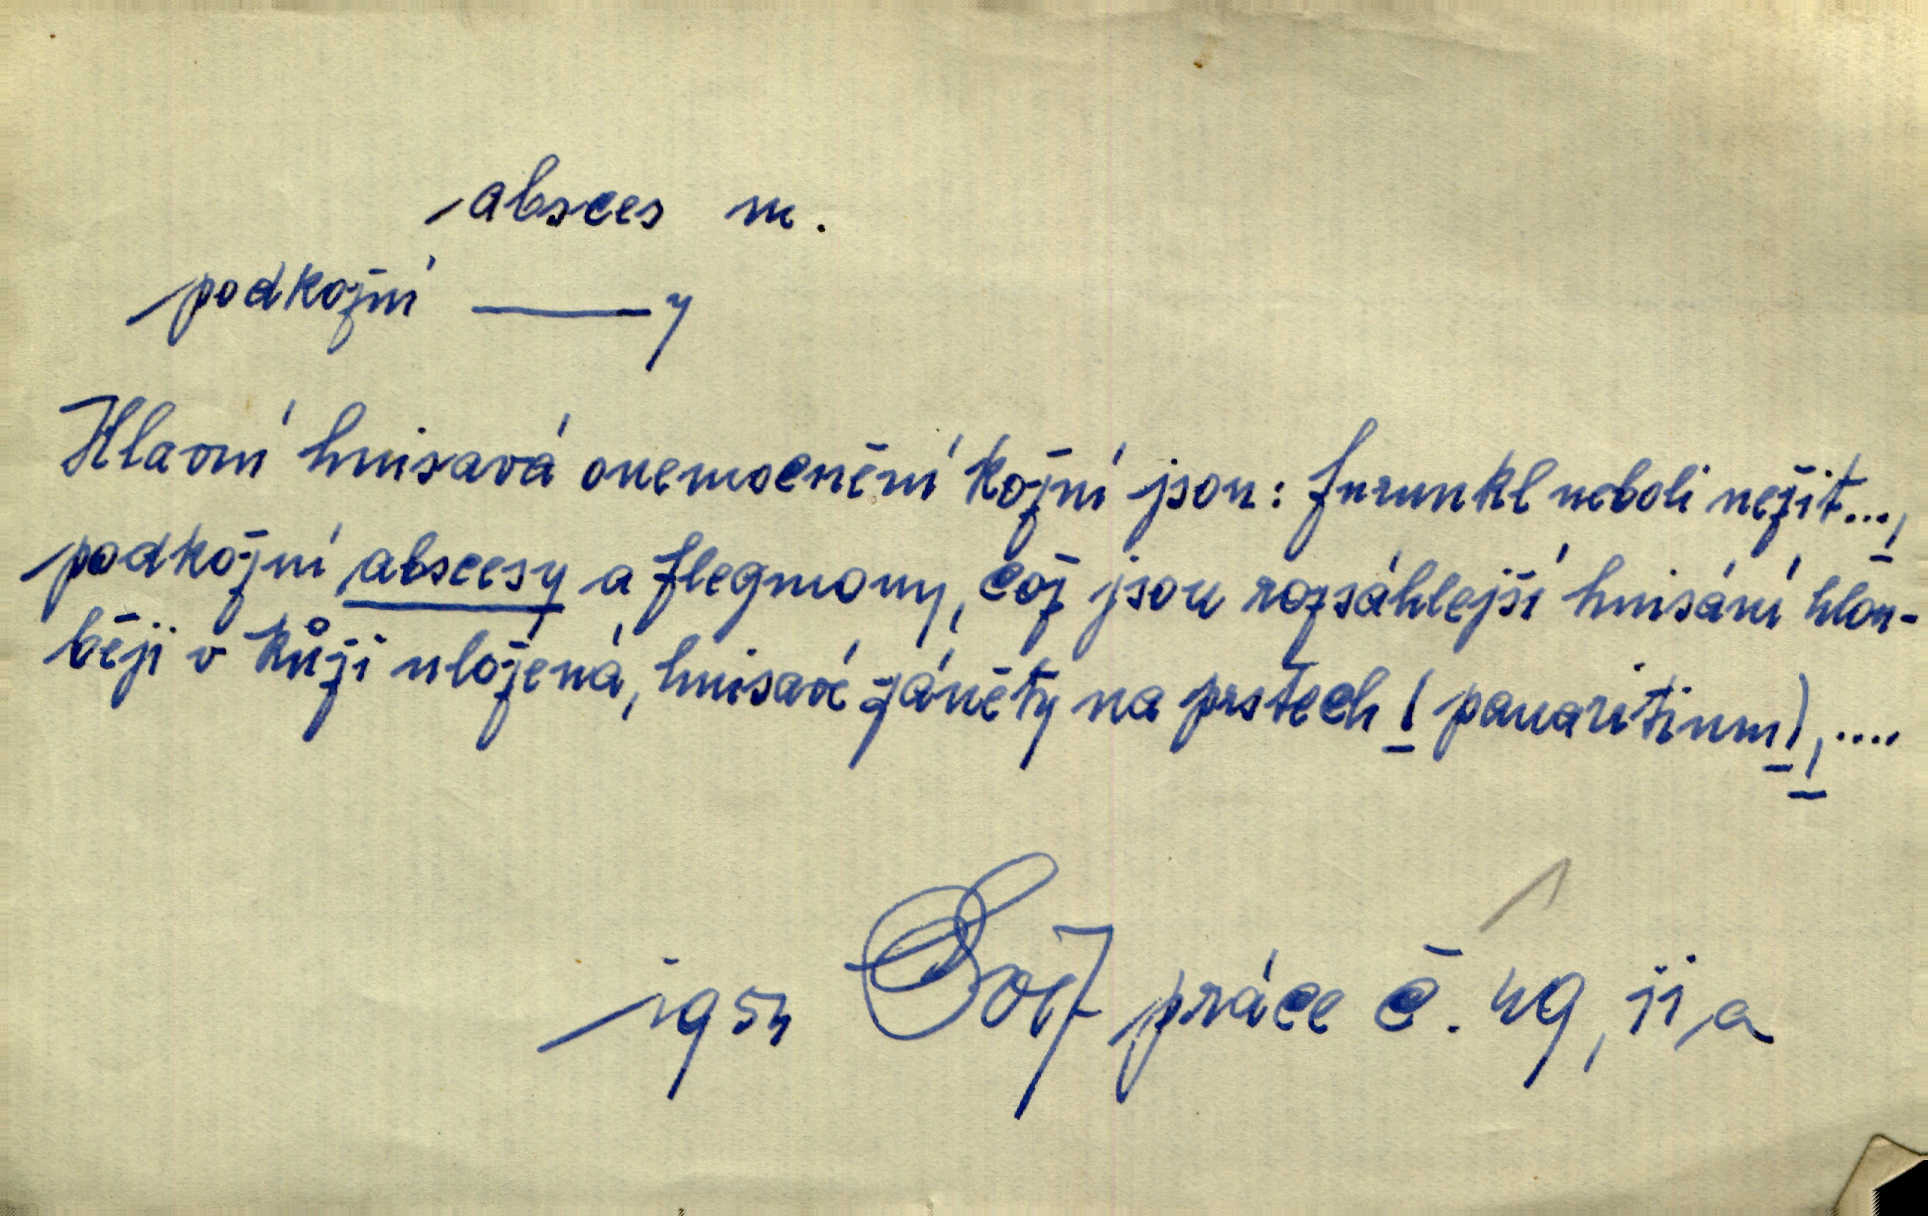 absces m.
podkožní ——y
Hlavní hnisavá onemocnění kožní jsou: furunkl neboli nežit...,
podkožní abscesy a flegmony, což jsou rozsáhlejší hnisání hlou-
běji v kůži uložená, hnisavé záněty na prstech (panaritium), ....
1954 práce č. 49, 11, a